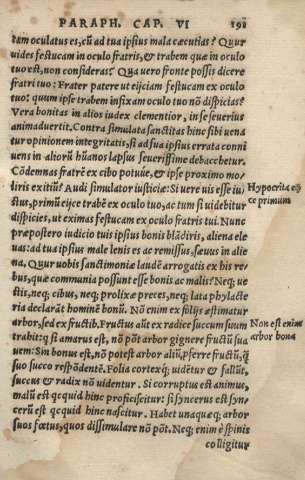 PARAPH. CAP. VI 198
tam oculatus es, cū ad tua ipsius mala cæcutias? Quur
vides festucam in oculo fratris, & trabem quæ in oculo
tuo est, non consideras? Qua vero fronte possis dicere
fratri tuo: Frater patere ut eijciam festucam ex oculo
tuo: quum ipse trabem infixam oculo tuo nō dispicias?
Vera bonitas in alios iudex clementior, in se severius
animadvertit. Contra simulata sanctitas hinc sibi vena
tur opinionem integritatis, si ad sua ipsius errata conni
vens in alioru hūanos lapsus severissime debacchetur.
Cōdemnas fratrē ex cibo potuue, & ipse proximo mo-
liris exitiū? Audi simulator iusticiæ: Si vere uis esse iu
Hypocrita eij
ce primum
stus, primū eijce trabē ex oculo tuo, ac tum si videbitur
dispicies, ut eximas festucam ex oculo fratris tui. Nunc
præpostero iudicio tuis ipsius bonis blādiris, aliena ele
uas: ad tua ipsius male lenis es ac remissus, sæuus in alie
na. Quur uobis sanctimoniæ laudē arrogatis ex his re
bus, quæ communia possunt esse bonis ac malis? Neq; ve
stis, neq; cibus, neq; prolixæ preces, neq; lata phylacte
ria declarāt hominē bonū. Nō enim ex folijs æstimatur
arbor, sed ex fructib. Fructus aūt ex radice succum suum
Non est enim
arbor bona
trahit: q si amarus est, nō pōt arbor gignere fructū sua
uem: Sin bonus est, nō potest arbor aliū, pferre fructū, q
suo succo respōdeat. Folia cortexq; uidētur & fallūt,
succus & radix nō videntur. Si corruptus est animus,
malū est qcquid hinc proficiscitur: si syncerus est syn-
cerū est qcquid hinc nascitur. Habet unaquæq; arbor
suos fœtus, quos dissimulare nō pōt. Neq; enim è spinis
colligitur